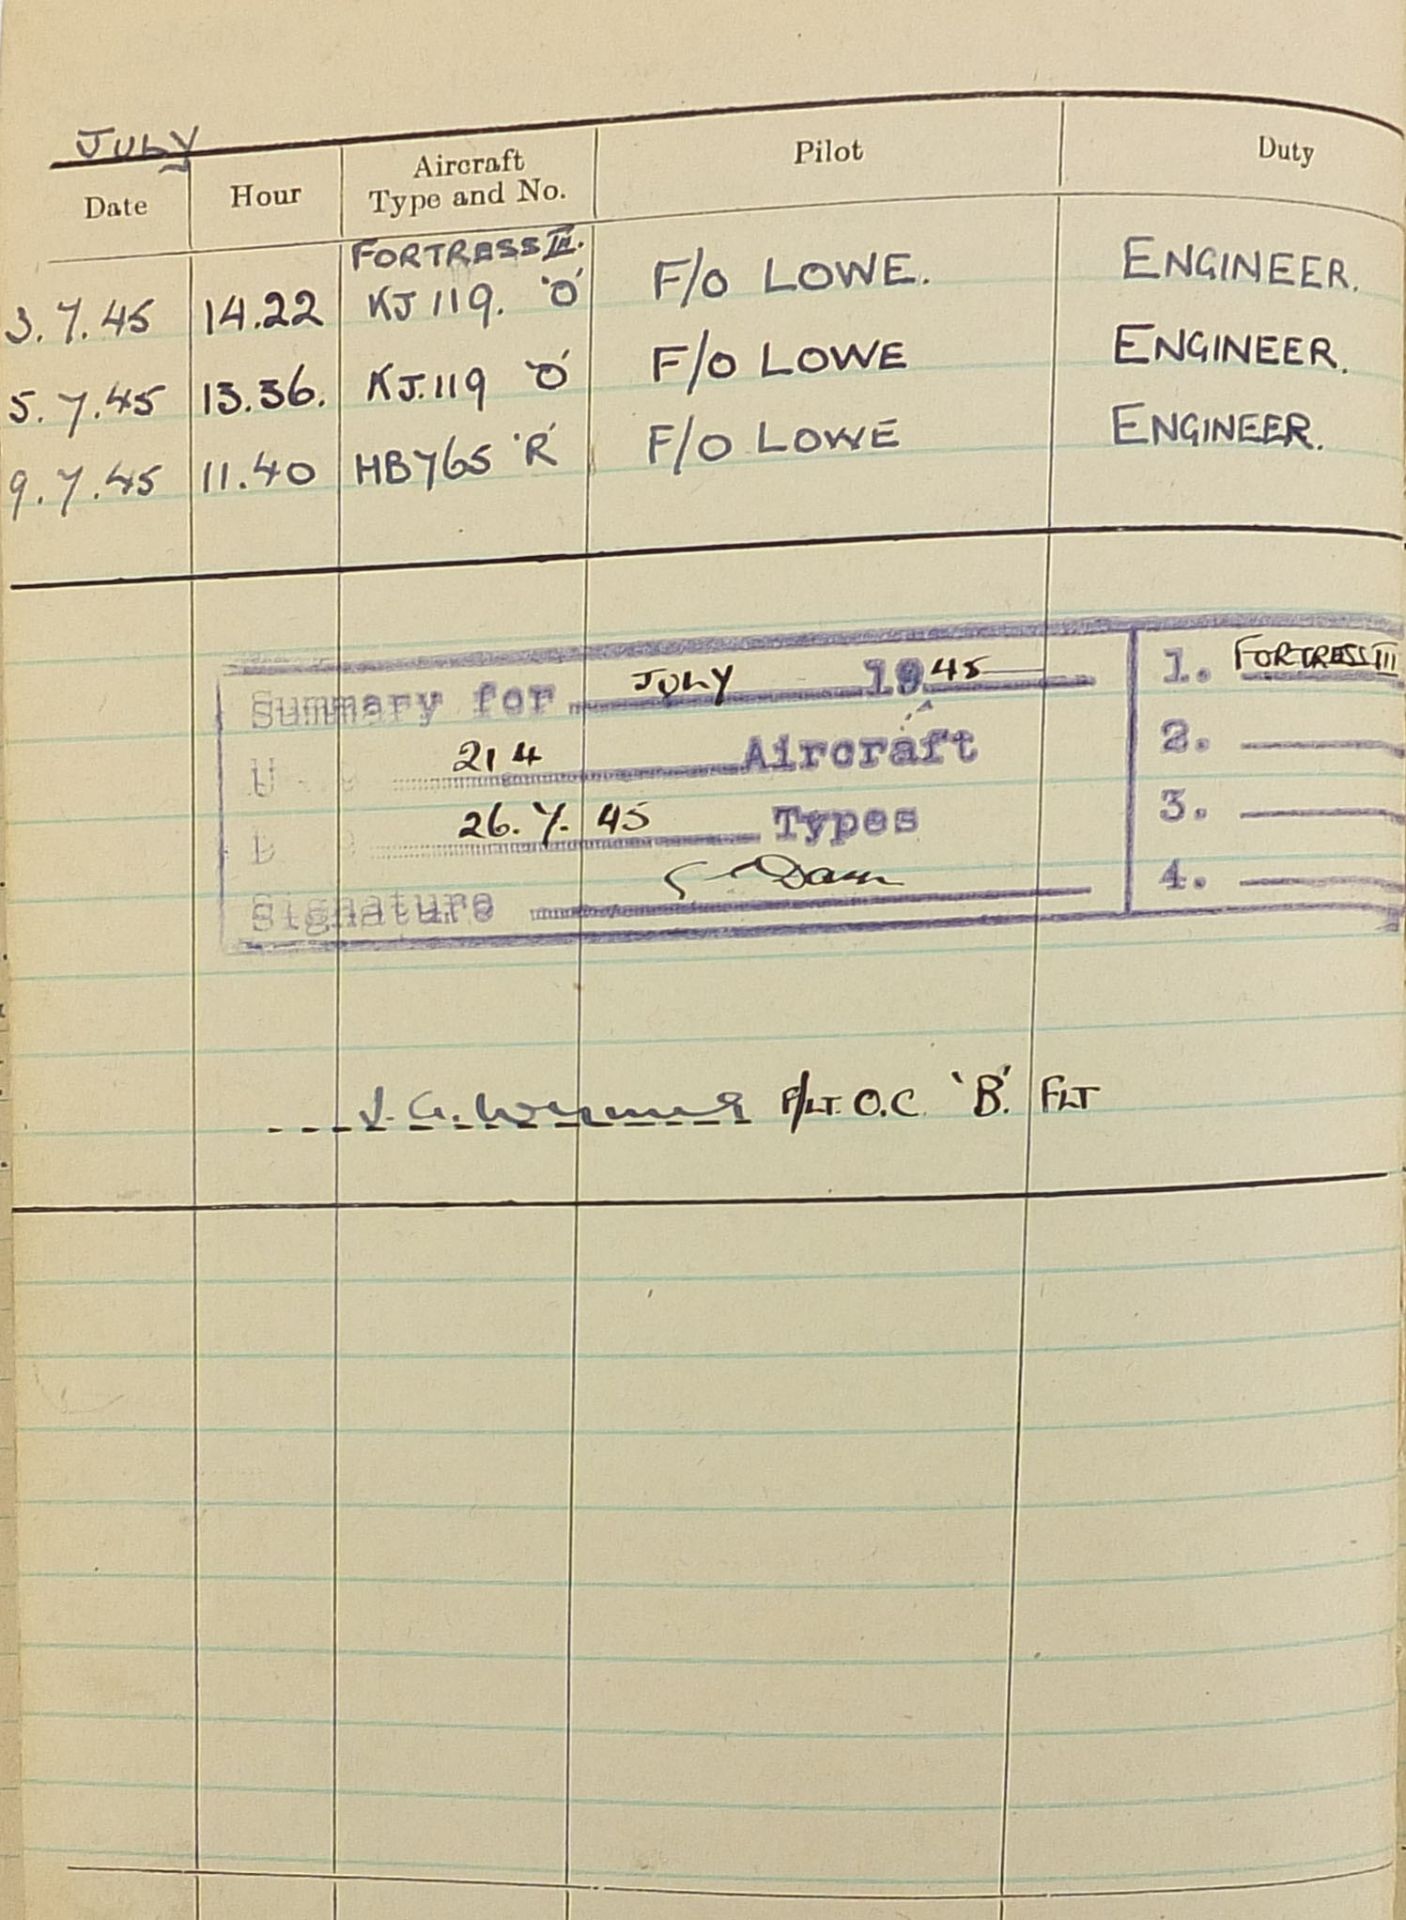 JULY
Date Hour Aircraft Type and No. Pilot Duty
FORTRESS III.
3.7.45 14.22 KJ 119. 'O' F/O LOWE. ENGINEER.
5.7.45 13.36. KJ.119 'O' F/O LOWE ENGINEER.
9.7.45 11.40 HB765 'R' F/O LOWE ENGINEER.
Summary for JULY 1945 1. FORTRESS III
U 214 Aircraft 2.
D 26.7.45 Types 3.
Signature 4.
F/LT. O.C. 'B'. FLT